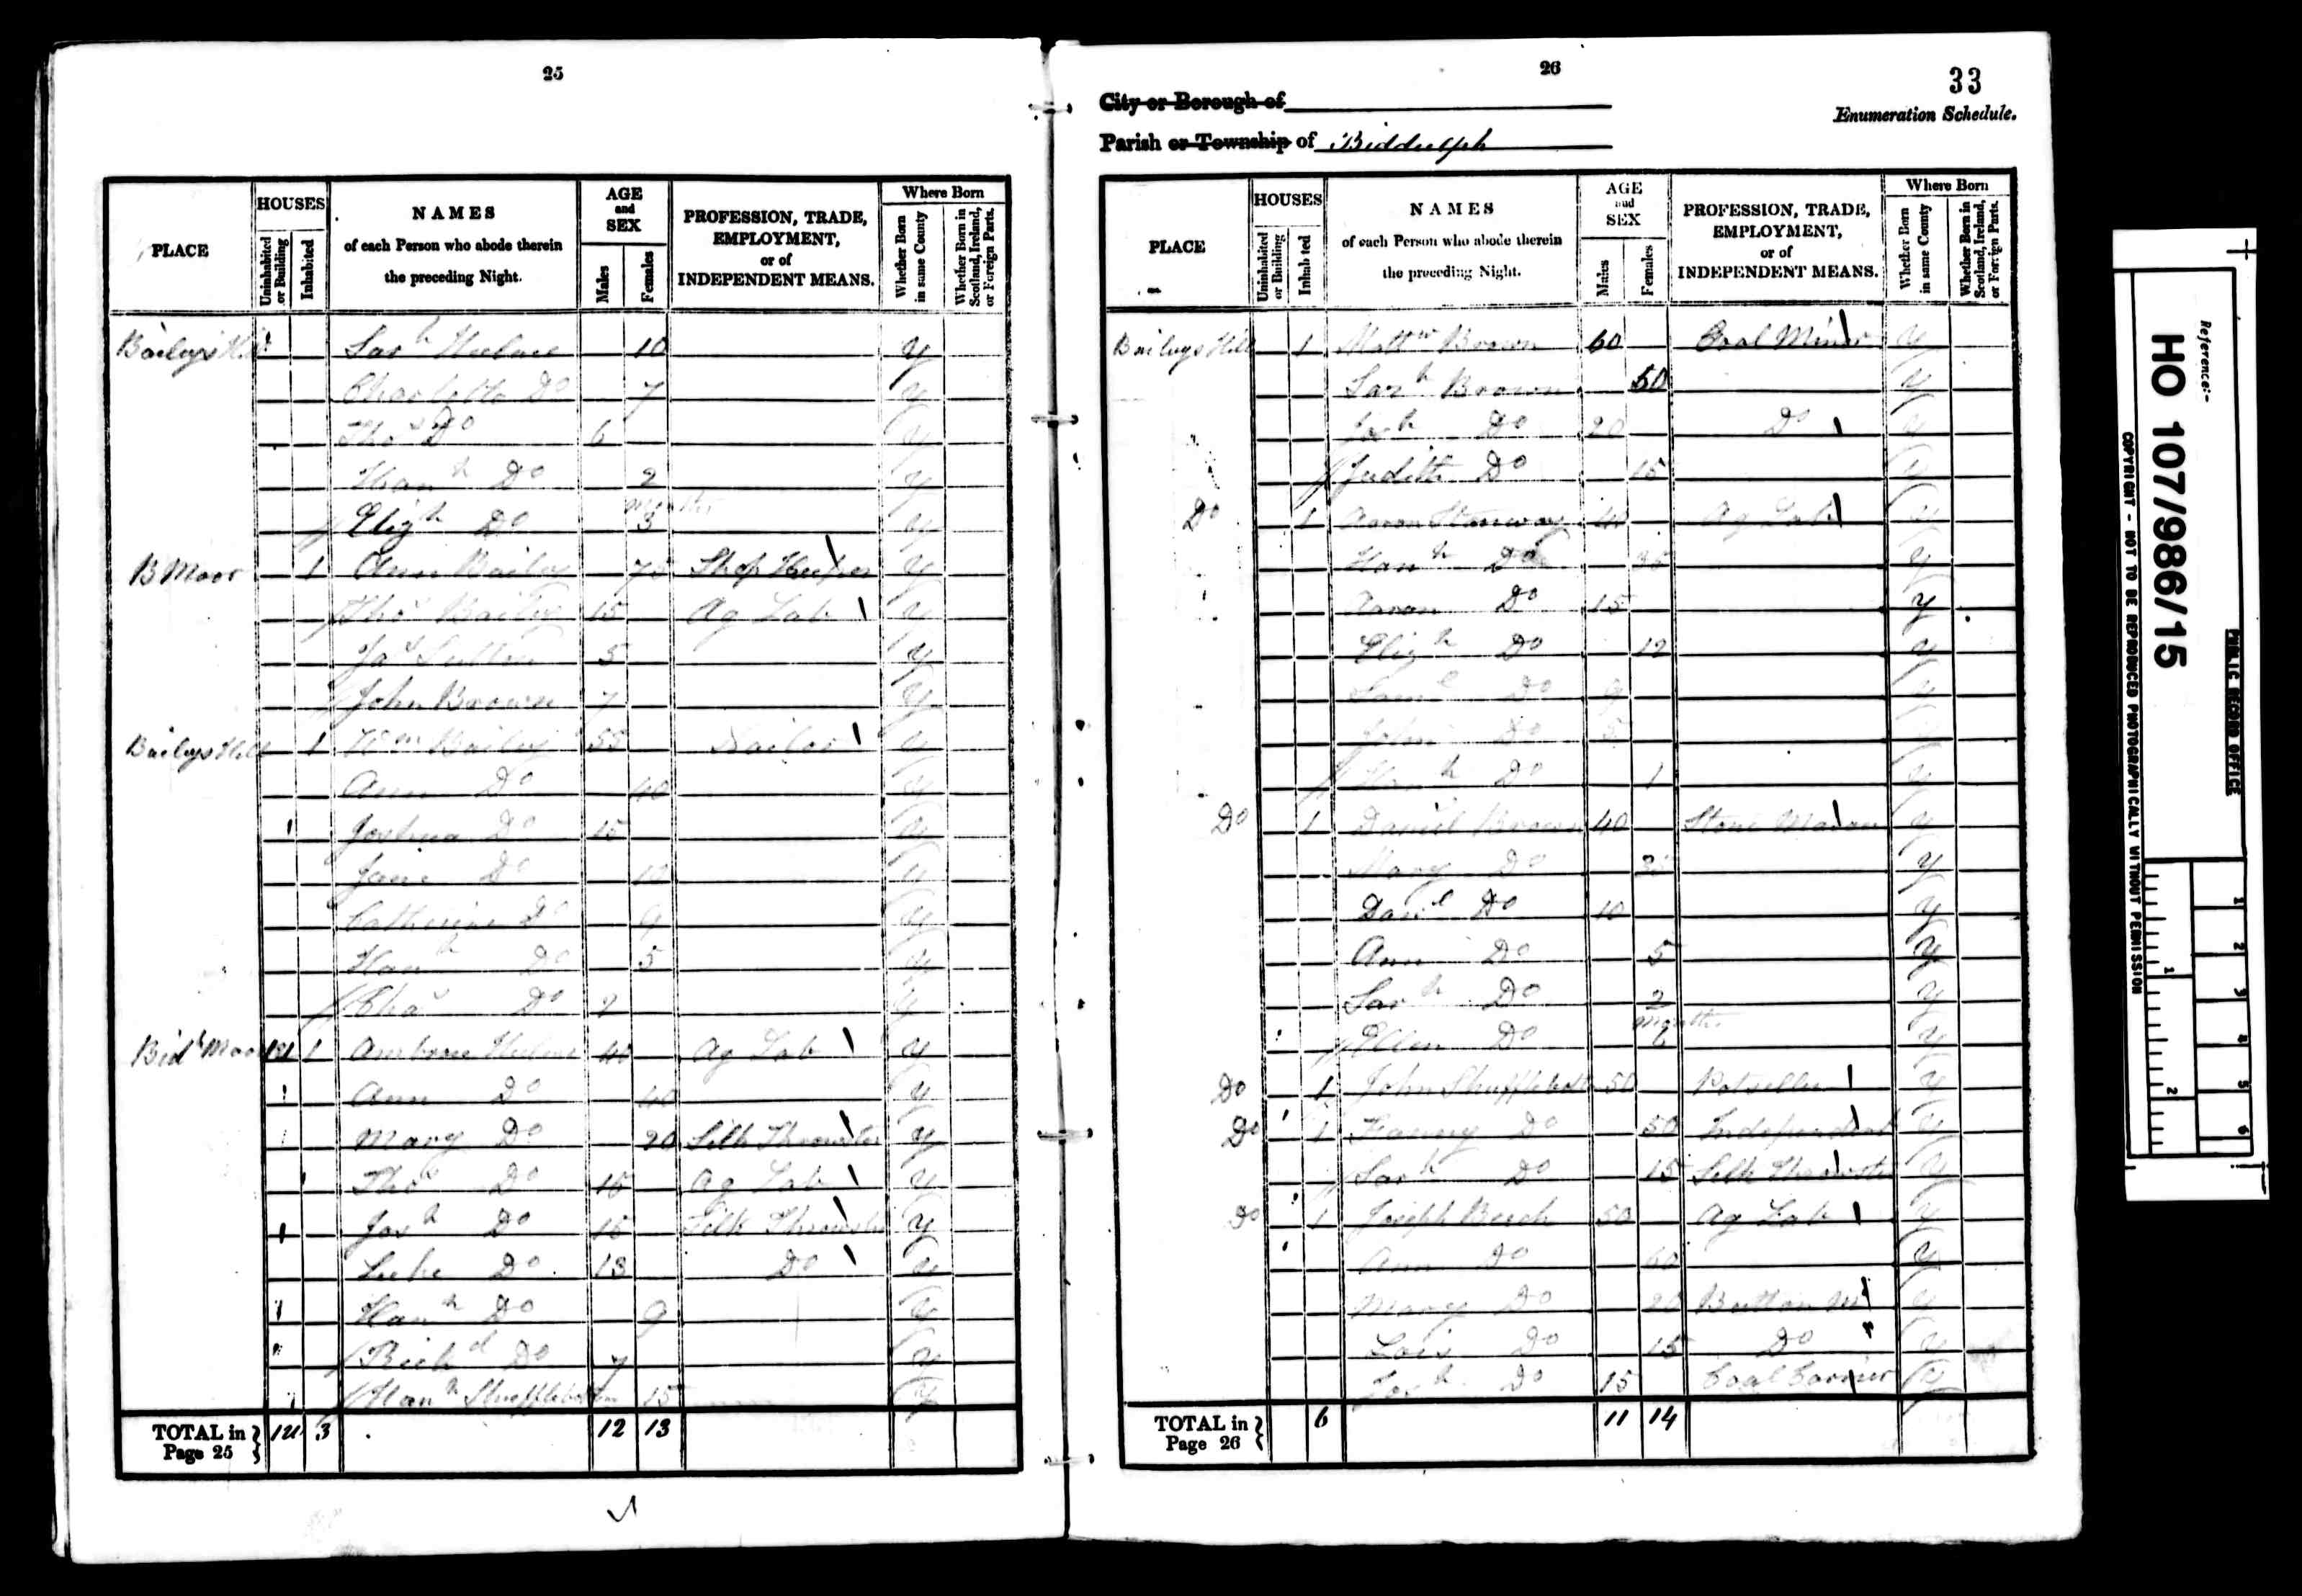 25
PLACE
HOUSES
Uninhabited or Building
Inhabited
NAMES
of each Person who abode therein
the preceding Night.
AGE
and
SEX
Males
Females
PROFESSION, TRADE,
EMPLOYMENT,
or of
INDEPENDENT MEANS.
Where Born
Whether Born in same County
Whether Born in Scotland, Ireland, or Foreign Parts.
Baileys Hill Sarh Hulme 10 y
Charlotte Do 7 y
Thos Do 6 y
Hanh Do 2 y
Months
Elizh Do 3 y
B Moor 1 Ann Bailey 75 Shop Keeper y
Thos Bailey 15 Ag Lab y
Jas 5 y
John Brown 7 y
Baileys Hill 1 Wm Bailey 55 y
Ann Do 40 y
Joshua Do 15 y
Jane Do y
Catherine Do 9 y
Hanh Do 5 y
Chas Do 2 y
Bidh Moor 1 Ambrose Hulme 40 Ag Lab y
Ann Do 40 y
Mary Do 20 Silk Throwster y
Thos Do 15 Ag Lab y
Josh Do 15 Silk Throwster y
Luke Do 13 Do y
Hanh Do 9 y
Richd Do 7 y
Hanh Shufflebottom 15 y
TOTAL in Page 25 3 12 13
26
33
City or Borough of
Enumeration Schedule.
Parish or Township of Biddulph
PLACE
HOUSES
Uninhabited or Building
Inhabited
NAMES
of each Person who abode therein
the preceding Night.
AGE
and
SEX
Males
Females
PROFESSION, TRADE,
EMPLOYMENT,
or of
INDEPENDENT MEANS.
Where Born
Whether Born in same County
Whether Born in Scotland, Ireland, or Foreign Parts.
Baileys Hill 1 Mattw Brown 60 Coal Miner y
Sarh Brown 50 y
Josh Do 20 Do y
Judith Do 15 y
Do 1 Aaron Stanway 40 Ag Lab y
Hanh Do 35 y
Aaron Do 15 y
Elizh Do 12 y
Saml Do 9 y
John Do y
Hanh Do 1 y
Do 1 Daniel Brown 40 Stone Mason y
Mary Do 35 y
Danl Do 10 y
Ann Do 5 y
Sarh Do 2 y
Months
Ellen Do 6 y
Do 1 John Shufflebottom 50 Potseller y
Do 1 Fanny Do 50 Independent y
Sarh Do 15 Silk Throwster y
Do 1 Joseph Beech 50 Ag Lab y
Ann Do 60 y
Mary Do 20 Button M y
Lois Do 15 Do y
Josh Do 15 Coal Carrier y
TOTAL in Page 26 6 11 14
Reference:-
HO 107/986/15
PUBLIC RECORD OFFICE
COPYRIGHT - NOT TO BE REPRODUCED PHOTOGRAPHICALLY WITHOUT PERMISSION
1
2
3
4
5
6
1
2